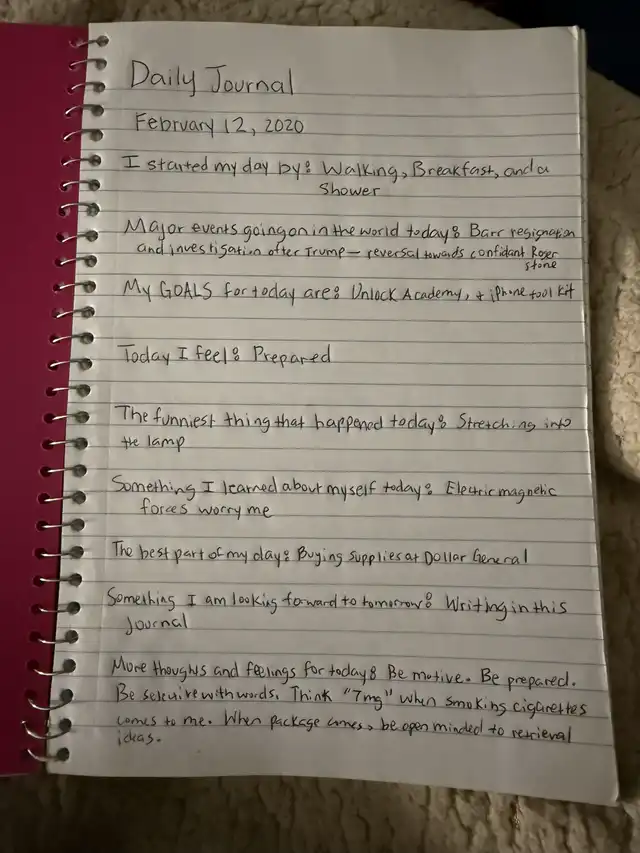 Daily Journal
February 12, 2020
I started my day by: Walking, Breakfast, and a
Shower
Major events going on in the world today: Barr resignation
and investigation after Trump — reversal towards confidant Roger
Stone
My GOALS for today are: Unlock Academy, + iPhone tool kit
Today I feel: Prepared
The funniest thing that happened today: Stretching into
the lamp
Something I learned about myself today: Electric magnetic
forces worry me
The best part of my day: Buying supplies at Dollar General
Something I am looking forward to tomorrow: Writing in this
Journal
More thoughts and feelings for today: Be motive. Be prepared.
Be with words. Think "7mg" when smoking cigarettes
comes to me. When package comes, be open minded to retrieval
ideas.